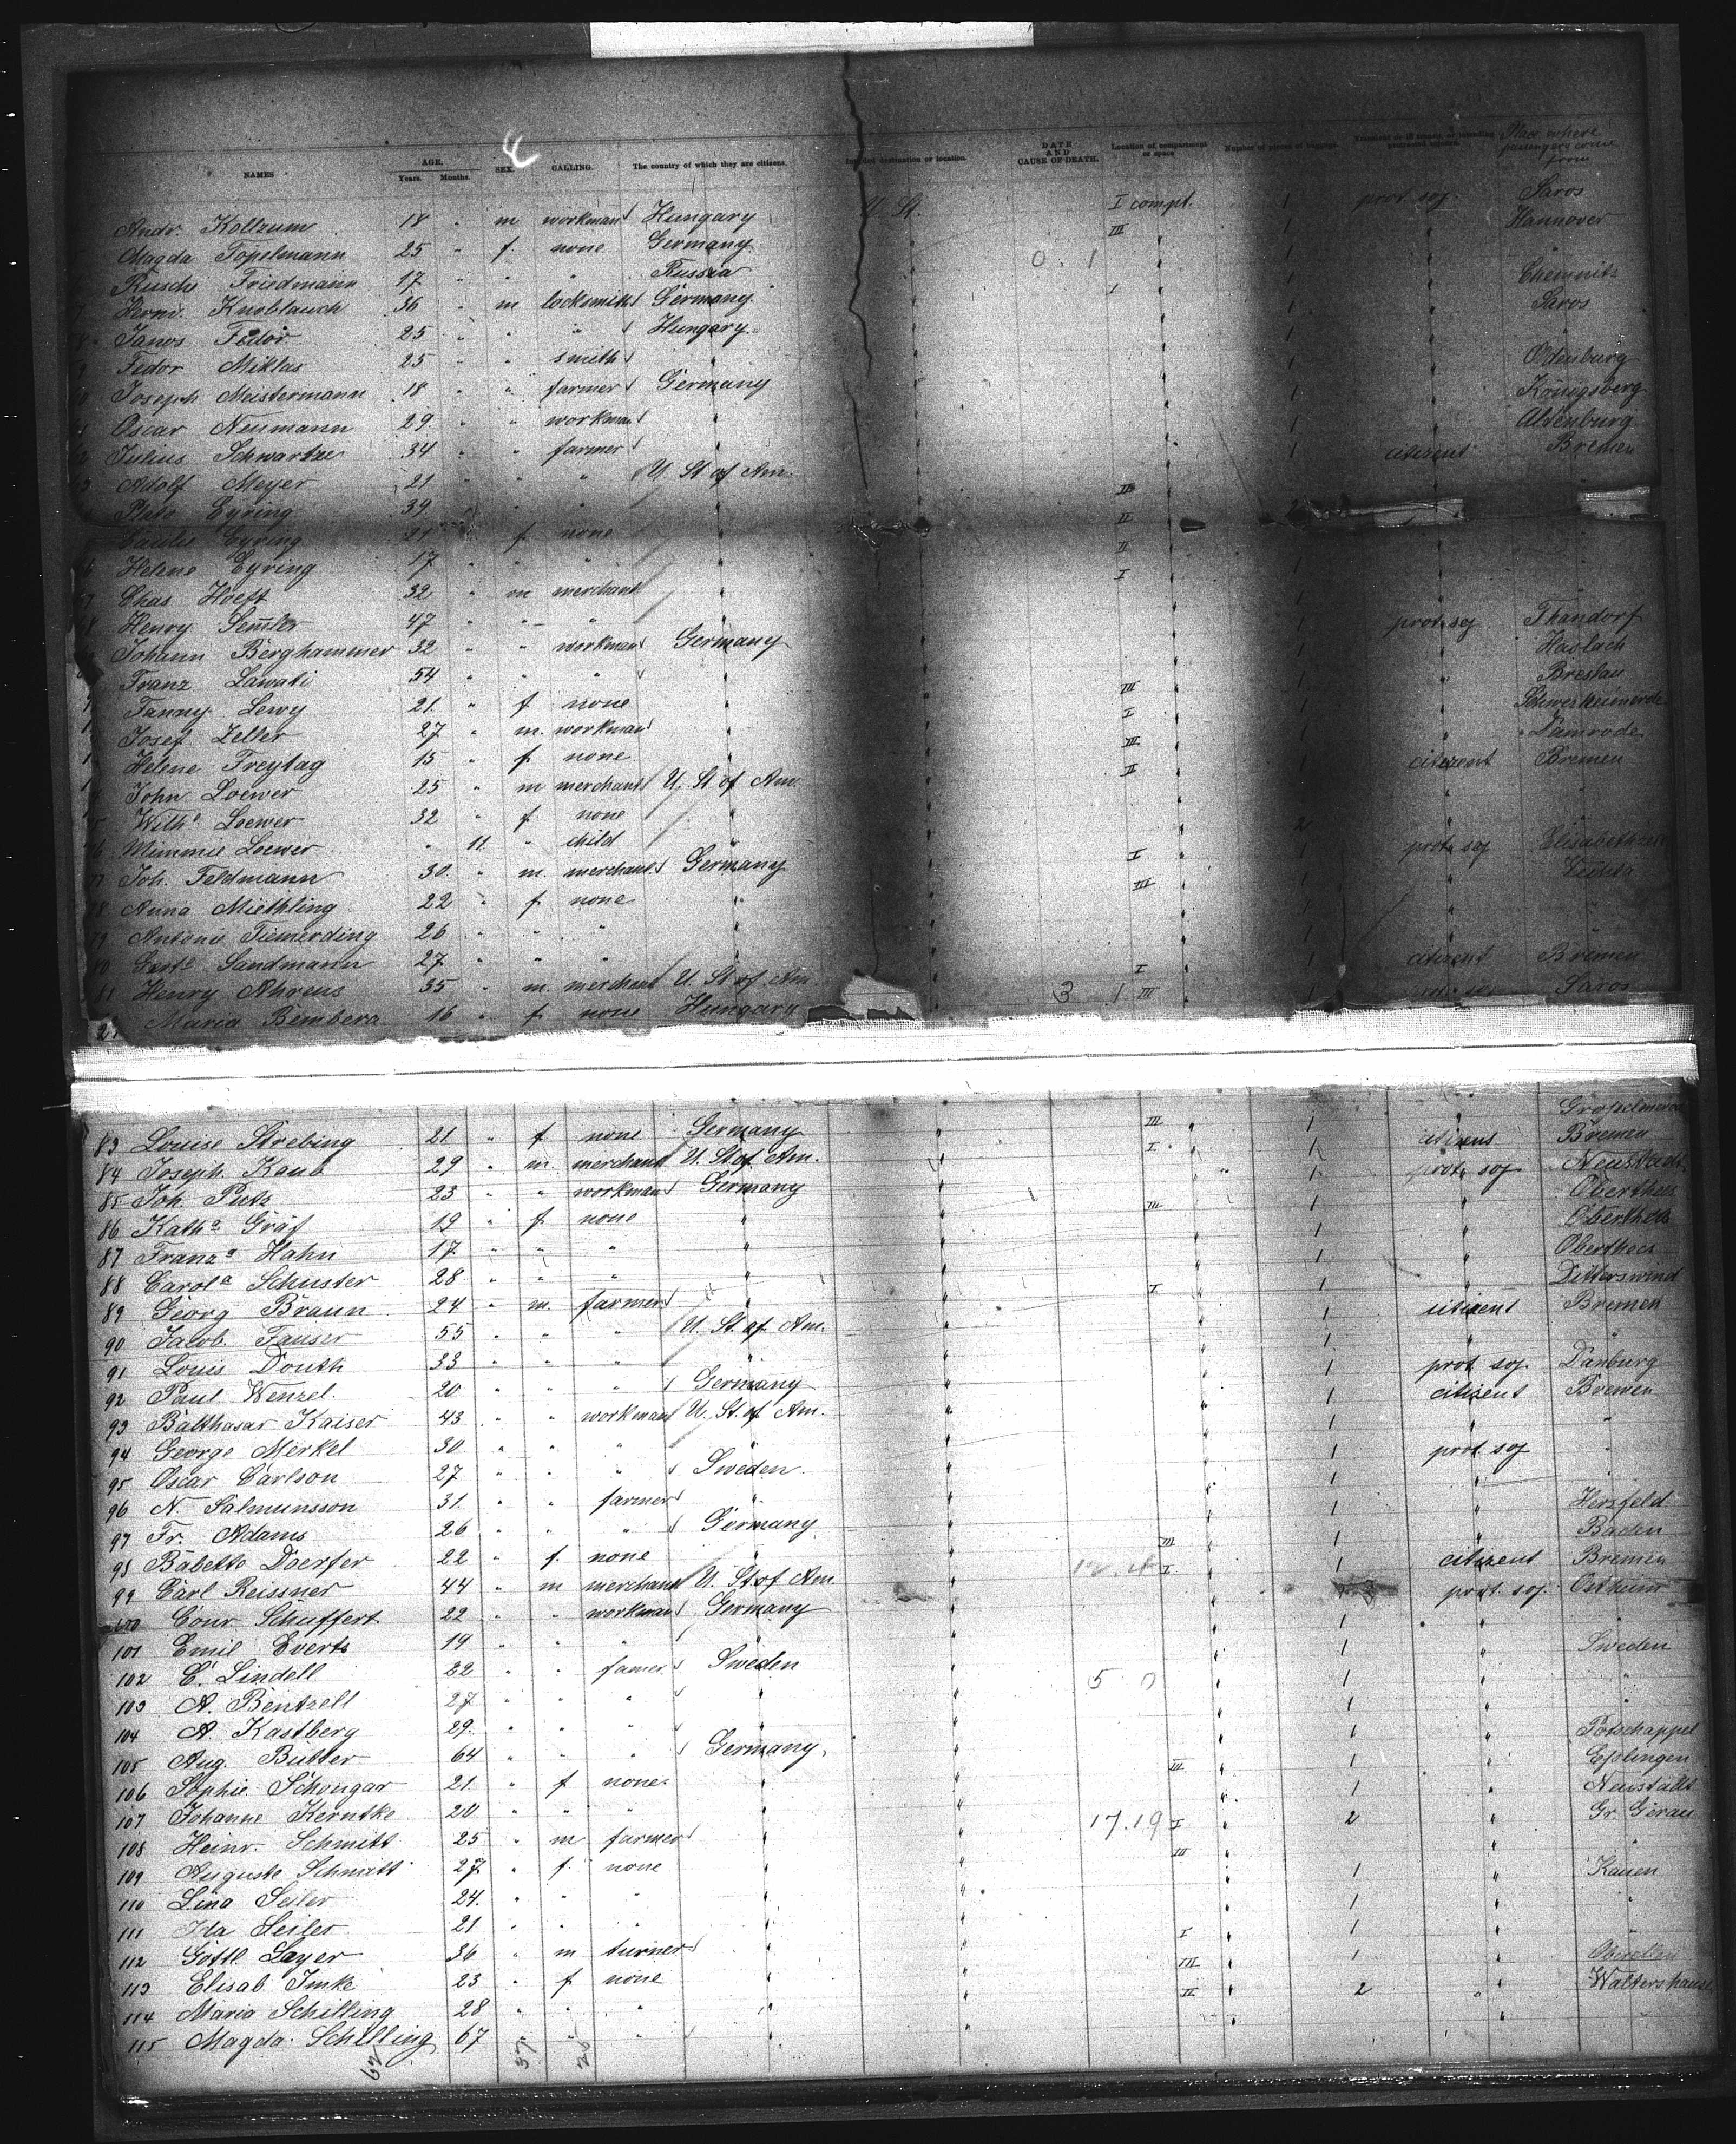 NAMES AGE. Years. Months. SEX. CALLING. The country of which they are citizens. Intended destination or location. DATE AND CAUSE OF DEATH. Location of compartment or space Number of pieces of baggage. Place where passengers come from
Andr. Koltzum 18 " m workman Hungary U. St. I compt. 1 prot. soj. Saros
Magda Topelmann 25 " f. none Germany " III 1 " Hannover
Rusche Friedmann 17 " " " Russia 0. 1 " 1 " "
Herm. Knoblauch 36 " m locksmith Germany " I 1 " Chemnitz
Janos Fedor 25 " " " Hungary 1 " Saros
Fedor Miklas 25 " " smith " 1 " "
Joseph Meistermann 18 " " farmer Germany 1 " Odenburg
Oscar Neumann 29 " " workman " 1 " Königsberg
Julius Schwartze 34 " " farmer " 1 " Altenburg
Adolf Meyer 21 " " " U St of Am. 1 citizent Bremen
Plato Eyring 39 " " " " II
Eyring 21 " f none " II
Helene Eyring 17 " " " " II
Chas Hoeft 32 " m merchant " I
Henry Semler 47 " " " "
Johann Berghammer 32 " " workman Germany 1 prot. soj Thandorf
Franz Lawati 54 " " " " 1 " Haslach
Fanny Lewy 21 " f none " III 1 " Breslau
Josef Zeller 27 " m. workman " I 1 "
Helene Freytag 15 " f none " III 1 " Damrode
John Loewer 25 " m merchant U. St. of Am. II citizent Bremen
Wilhe. Loewer 32 " f none "
Mimmie Loewer " 11 " child " 2
Joh. Feldmann 30 " m. merchant Germany I 1 prot. soj
Anna Miethling 22 " f none " III 1 "
Antonie Tiemerding 26 " " " " "
Geste Sandmann 27 " " " " 1 "
Henry Ahrens 35 " m. merchant U. St. of Am. I 1 citizent Bremen
Maria Bembera 16 " f none Hungary 3 1 III 1 Saros
83 Louise Strebing 21 " f none Germany " III 1 "
84 Joseph Kaub 29 " m. merchant U. St of Am. " I 1 citizens Bremen
85 Joh. Putz 23 " " workman Germany " " 1 prot. soj Neustadt
86 Katha Gräf 19 " f none " " III 1 " Oberthees
87 Franza Hahn 17 " " " " " 1 " Oberthees
88 Carola Schuster 28 " " " " " 1 " Oberthees
89 Georg Braun 24 " m. farmer " " I 1 " Ditterswind
90 Jacob Fauser 55 " " " U. St. of Am. " 1 citizent Bremen
91 Louis Douth 33 " " " " " 1 " "
92 Paul Wenzel 20 " " " Germany " 1 prot. soj. Danburg
93 Balthasar Kaiser 43 " " workman U. St. of Am. " 1 citizent Bremen
94 George Merkel 30 " " " " " 1 " "
95 Oscar Carlson 27 " " " Sweden " 1 prot soj "
96 N. Salmunsson 31 " " farmer " " 1 " "
97 Fr. Adams 26 " " " Germany " 1 " Hersfeld
98 Babette Doerfer 22 " f. none " " III 1 " Baden
99 Carl Reissner 44 " m merchant U. St of Am " I 1 citizent Bremen
100 Conr Schuffert 22 " " workman Germany " prot. soj. Ostheim
101 Emil Everts 19 " " " " " 1 " "
102 E. Lindell 22 " " famer Sweden " 1 " Sweden
103 A. Bentzell 27 " " " " " 5 0 1 " "
104 A. Kastberg 29. " " " " " 1 " "
105 Aug. Butter 64 " " " Germany. " 1 " Potschappel
106 Sophie Schongar 21 " f none " " III 1 " Eßlingen
107 Johanne Kerntke 20 " " " " " 1 " Neustadt
108 Heinr. Schmitt 25 " m farmer " " 17.19 I 2 " Gr Gerau
109 Auguste Schmitt 27 " f. none " " III "
110 Lina Seiler 24. " " " " " 1 " Kauen
111 Ida Seiler 21 " " " " " 1 " "
112 Gottl Layer 36 " m turner " " I 1 "
113 Elisab Imke 23 " f none " " III 1 "
114 Maria Schilling 28 " " " " " II 2 " Waltershause
115 Magda Schilling 67 " " " " " " "
62 37 28